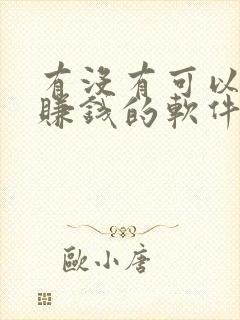 有没有可以
賺錢的軟件
歐小唐